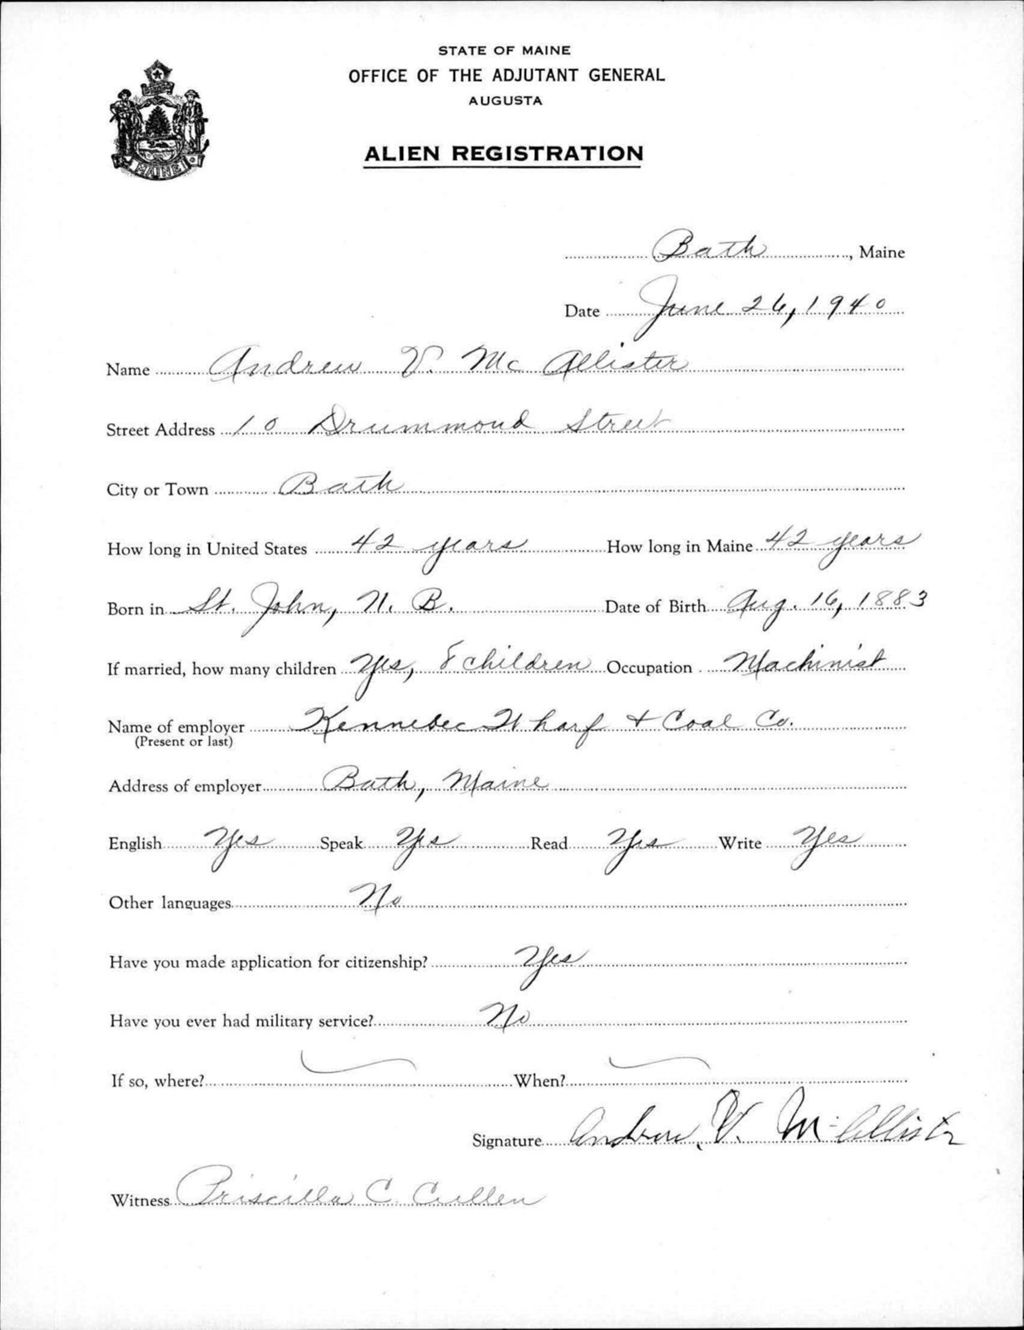 STATE OF MAINE
OFFICE OF THE ADJUTANT GENERAL
AUGUSTA
ALIEN REGISTRATION
MAINE
Bath, Maine
Date June 26, 1940
Name Andrew V. Mc Allister
Street Address 10 Drummond Street
City or Town Bath
How long in United States 42 years How long in Maine 42 years
Born in St. John, N. B. Date of Birth Aug. 16, 1883
If married, how many children Yes, 8 children Occupation Machinist
Name of employer Kennebec Wharf + Coal Co.
(Present or last)
Address of employer Bath, Maine
English Yes Speak Yes Read Yes Write Yes
Other languages No
Have you made application for citizenship? Yes
Have you ever had military service? No
If so, where? When?
Signature Andrew. V. McAllister
Witness Priscilla C. Cullen